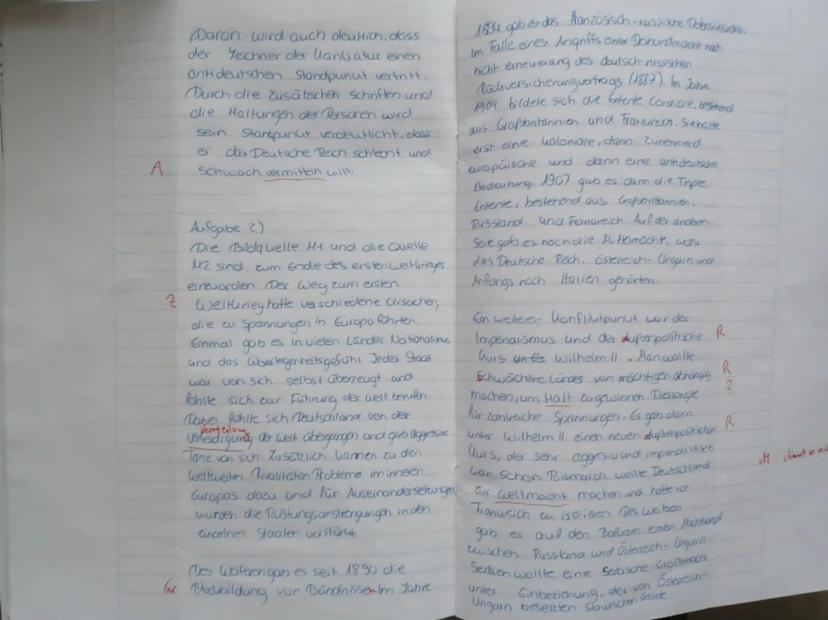 Daran wird auch deutlich, dass
der Zeichner der Karikatur einen
antideutschen Standpunkt vertritt.
Durch die zusätzlichen Schriften und
die Haltungen der Personen wird
sein Standpunkt verdeutlicht, dass
er das Deutsche Reich schlecht und
A schwach vermitteln will.
Aufgabe 2)
Die Bildquelle M1 und die Quelle
M2 sind zum Ende des ersten Weltkrieges
entworden. Der Weg zum ersten
Z Weltkrieg hatte verschiedene Ursachen,
die zu Spannungen in Europa führten.
Einmal gab es in vielen Länder Nationalismus
und das Überlegenheitsgefühl. Jeder Staat
war von sich selbst überzeugt und
fühlte sich zur Führung der Welt berufen.
Dabei fühlte sich Deutschland von der
Verteilung
Verteidigung der Welt übergangen und gab aggressive
Töne von sich. Zusätzlich kamen zu den
weltweiten Rivalitäten Probleme im inneren
Europas dazu und für Auseinandersetzungen
wurden die Rüstungsanstrengungen in den
einzelnen Staaten verstärkt.
Des Weiteren gab es seit 1890 die
Gr Blockbildung von Bündnissen. Im Jahre
1894 gab es das Französisch-russische
Im Falle eines Angriffs einer Dreibundmacht nach
nicht erneuerung des deutsch russischen
Rückversicherungvertrags (1887). Im Jahre
1904 bildete sich die Entente Cordiale, bestehend
aus Großbritannien und Frankreich. Sie hatte
erst eine koloniale, dann zunehmend
europäische und dann eine antideutsche
Bedeutung. 1907 gab es dann die Triple
Entente, bestehend aus Großbritannien,
Russland und Frankreich. Auf der anderen
Seite gab es noch die Mittelmächte, wozu
das Deutsche Reich, Österreich-Ungarn und
Anfangs noch Italien gehörten.
Ein weiterer Konfliktpunkt war der
Imperialismus und der außenpolitische R
Kurs Wilhelm II. Man wollte
schwächere Länder von mächtigen abhängig R
machen, um Halt zu gewinnen. Dies sorgte Z
für zahlreiche Spannungen. Es gab dann
unter Wilhelm II einen neuen außenpolitischen R
Kurs, der sehr aggresiv und imperialistisch
war. Schon Bismarck wollte Deutschland
zur Weltmacht machen und hatte vor
Frankreich zu isolieren. Des Weiteren
gab es auf den Balkan einen
zwischen Russland und Österreich-Ungarn
Serbien wollte eine Serbische Großmacht
unter Einbeziehung, der von Österreich-
Ungarn besetzten slawischen Gebiete